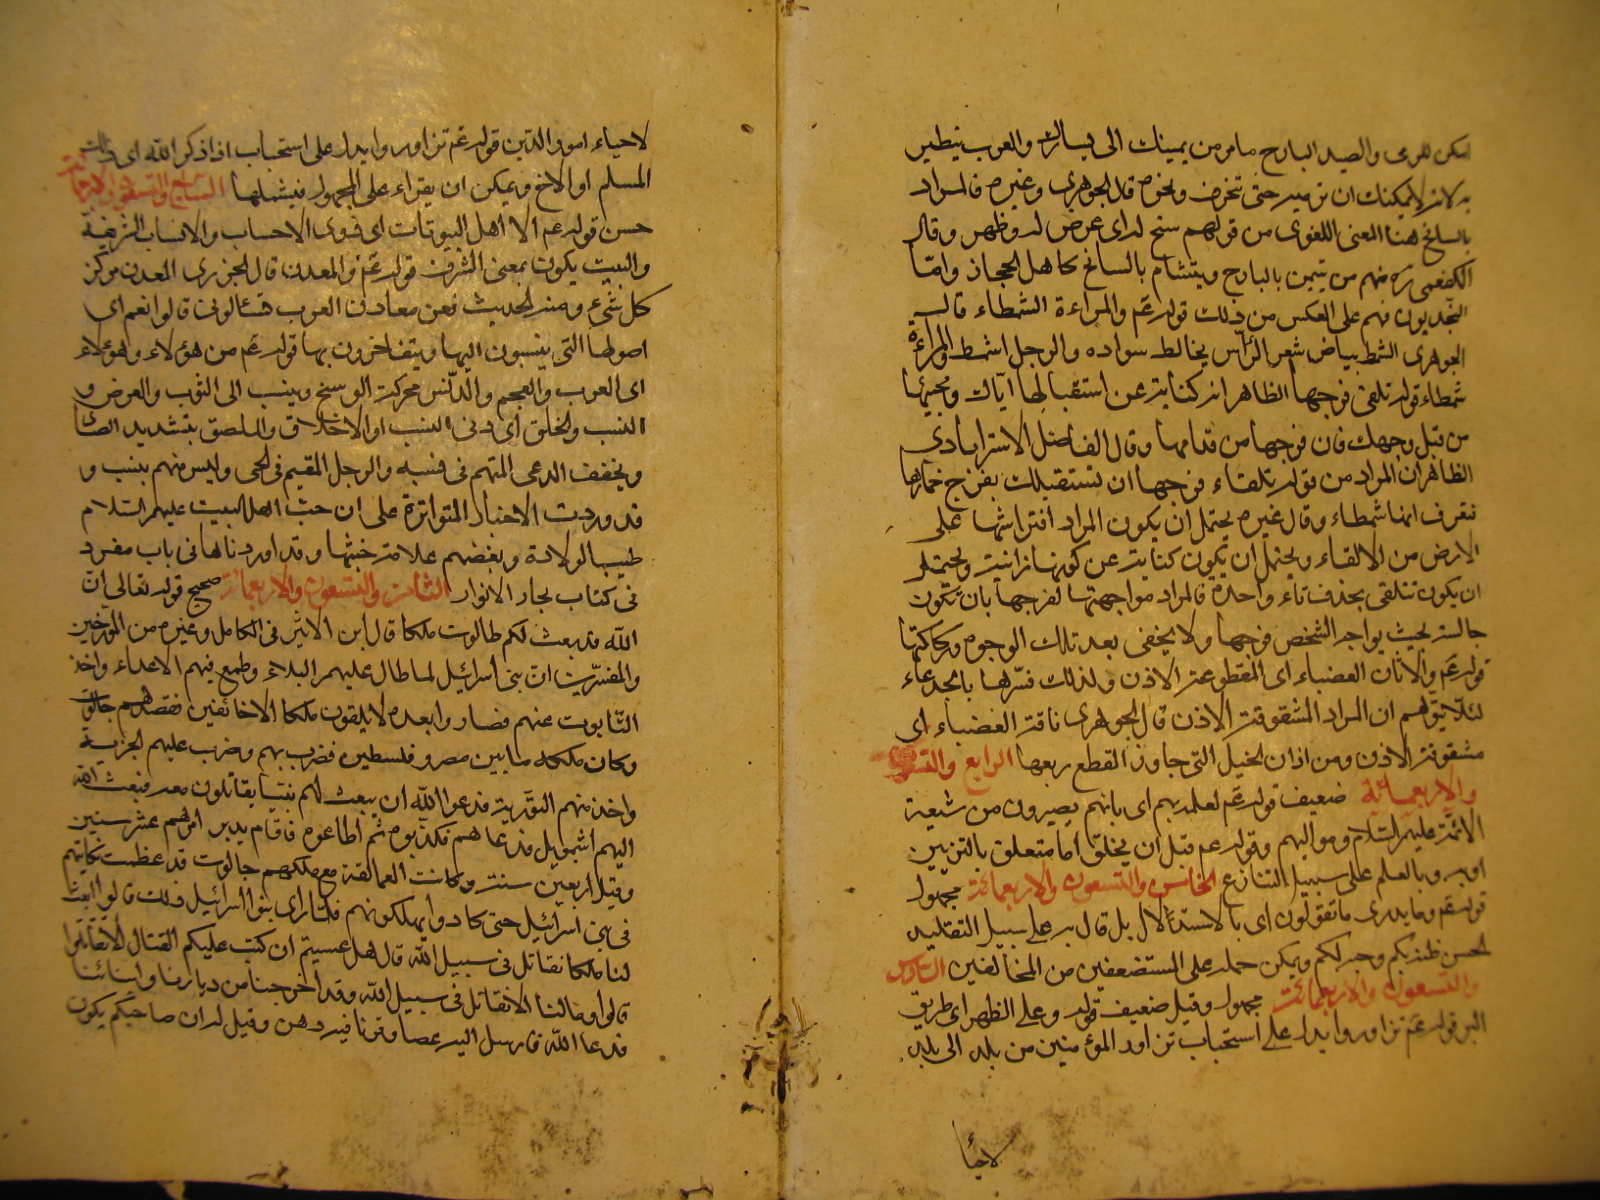 امكن للرمى والصيد البارح ما مر من يمينك الى يسارك والعرب يتطير
به لانه لا يمكنك ان ترميه حتى تنحرف ونحوه قال الجوهرى وغيره فالمراد
بالسانح هنا المعنى اللغوى من قولهم سنح له اى عرض له وظهر وقال
الكفعمى ره منهم من يتيمن بالبارح ويتشأم بالسانح كاهل الحجاز وامّا
النجديون فهم على العكس من ذلك قوله عم والمراءة الشمطاء قال
الجوهرى الشمط بياض شعر الرأس يخالط سواده والرجل اشمط والمراءة
شمطاء قوله تلقى فرجها الظاهر انه كناية عن استقبالها ايّاك ومجيئها
من قبل وجهك فان فرجها من قدامها وقال الفاضل الاسترابادى
الظاهر ان المراد من قوله تلقاء فرجها ان تستقبلك بفرج خمارها
فتعرف انها شمطاء وقال غيره يحتمل ان يكون المراد افتراشها على
الارض من الالقاء ويحتمل ان يكون كناية عن كونها زانية ويحتمل
ان يكون تتلقى بحذف تاء واحدة فالمراد مواجهتها لفرجها بان تكون
جالسة بحيث يواجه الشخص فرجها ولا يخفى بعد تلك الوجوه وركاكتها
قوله عم والاتان العضباء اى المقطوعة الاذن ولذلك فسّرها بالجدعاء
لئلا يتوهم ان المراد المشقوقة الاذن قال الجوهرى ناقة العضباء اى
مشقوقة الاذن ومن اذان الخيل التى جاوز القطع ربعها الرابع والتسعون
والاربعمائة ضعيف قوله عم لعلمه بهم اى بانهم يصيرون من شيعة
الائمة عليهم السلام ومواليهم وقوله عم قبل ان يخلق اما متعلق بالتزيين
او به وبالعلم على سبيل التنازع الخامس والتسعون والاربعمائة مجهول
قوله عم وما يدرى ما تقولون اى بالاستدلال بل قال به على سبيل التقليد
لحسن ظنه بكم وحبه لكم ويمكن حمله على المستضعفين من المخالفين السادس
والتسعون والاربعمائة مجهول وقيل ضعيف قوله وعلى الظهر اى طريق
البر قوله عم تزاوروا يدل على استحباب تزاور المؤمنين من بلد الى بلد
لاحيا
لاحياء امور الدين قوله عم تزاوروا يدل على استحباب اذا ذكر الله اى ذلك
المسلم او الاخ ويمكن ان يقراء على المجهول فيشملها السابع والتسعون والاربعمائة
حسن قوله عم الا اهل البيوتات اى ذوى الاحساب والانساب الشريفة
والبيت يكون بمعنى الشرف قوله عم والمعدن قال الجزرى المعدن مركز
كل شىء ومنه الحديث فعن معادن العرب تسئالونى قالوا نعم اى
اصولها التى ينسبون اليها ويتفاخرون بها قوله عم من هؤلاء وهؤلاء
اى العرب والعجم والدّنس محركة الوسخ وينسب الى الثوب والعرض و
النسب والخلق اى دنى النسب او الاخلاق والملصق بتشديد الصاد
وتخفف الدعى المتهم فى نسبه والرجل المقيم فى الحى وليس منهم بنسب و
قد وردت الاخبار المتواترة على ان حب اهل البيت عليهم السلام
طيب الولادة وبغضهم علامة خبثها وقد اوردناها فى باب مفرد
فى كتاب بحار الانوار الثامن والتسعون والاربعمائة صحيح قوله تعالى انّ
الله قد بعث لكم طالوت ملكا قال ابن الاثير فى الكامل وغيره من المورخين
والمفسّرين ان بنى اسرائيل لما طال عليهم البلاء وطمع فيهم الاعداء واخذ
التابوت عنهم فصاروا بعده لا يلقون ملكا الا خائفين فقصدهم جالوت
وكان ملكه ما بين مصر وفلسطين فضرب بهم وضرب عليهم الجزية
واخذ منهم التورية فدعوا الله ان يبعث لهم نبيا يقاتلون معه فبعث الله
اليهم اشمويل فدعاهم فكذبوه ثم اطاعوه فاقام يدبر امرهم عشر سنين
وقيل اربعين سنة وكانت العمالقة مع ملكهم جالوت قد عظمت نكايتهم
فى بنى اسرائيل حتى كادوا يهلكونهم فلما راى بنو اسرائيل ذلك قالوا ابعث
لنا ملكا نقاتل فى سبيل الله قال هل عسيتم ان كتب عليكم القتال الا تقاتلوا
قالوا وما لنا الا نقاتل فى سبيل الله وقد اخرجنا من ديارنا وابنائنا
فدعا الله فارسل اليه عصا وقرنا فيه دهن وقيل له ان صاحبكم يكون